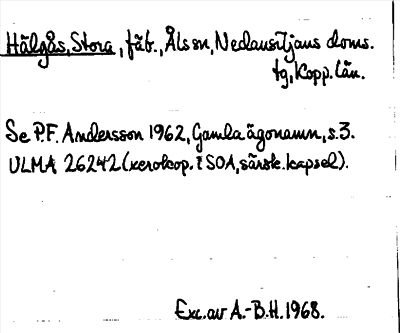 Hälgås, Stora, fäb., Åls sn, Nedansiljans doms.
tg, Kopp. län.
Se P.F. Andersson 1962, Gamla ägonamn, s. 3.
ULMA 26242 (xerokop. i SOA, särsk. kapsel).
Exc. av A.-B.H. 1968.